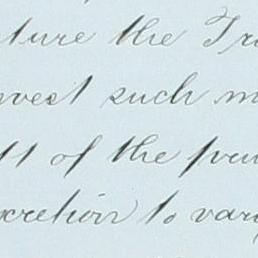 ture the Tru
nvest such m
tt of the pur
scretion to vary